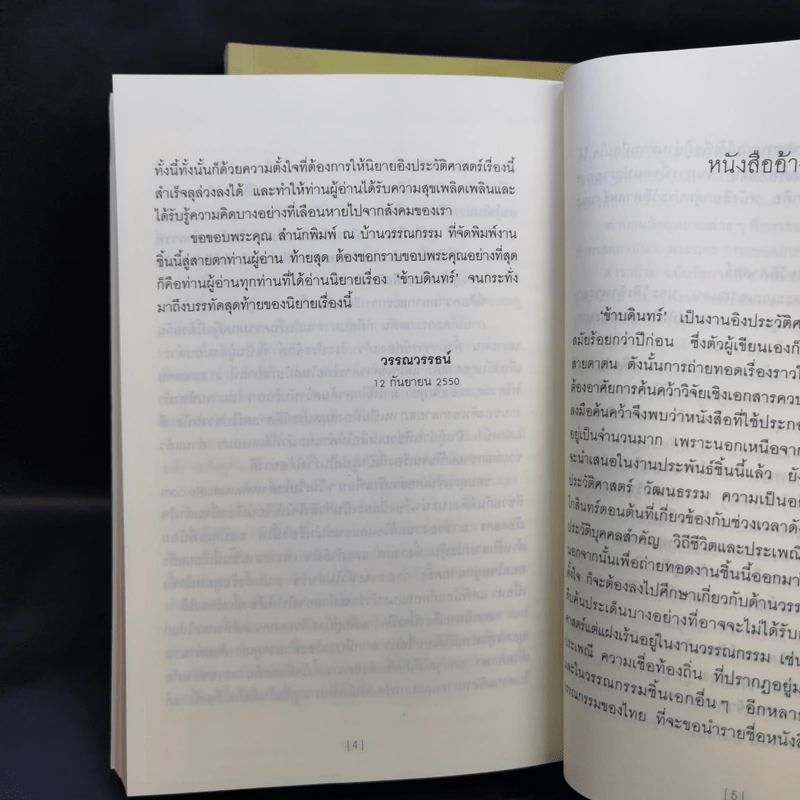 ทั้งนี้ทั้งนั้นก็ด้วยความตั้งใจที่ต้องการให้นิยายอิงประวัติศาสตร์เรื่องนี้
สำเร็จลุล่วงลงได้ และทำให้ท่านผู้อ่านได้รับความสุขเพลิดเพลินและ
ได้รับรู้ความคิดบางอย่างที่เลือนหายไปจากสังคมของเรา
ขอขอบพระคุณ สำนักพิมพ์ ณ บ้านวรรณกรรม ที่จัดพิมพ์งาน
ชิ้นนี้สู่สายตาท่านผู้อ่าน ท้ายสุด ต้องขอกราบขอบพระคุณอย่างที่สุด
ก็คือท่านผู้อ่านทุกท่านที่ได้อ่านนิยายเรื่อง 'ข้าบดินทร์' จนกระทั่ง
มาถึงบรรทัดสุดท้ายของนิยายเรื่องนี้
วรรณวรรธน์
12 กันยายน 2550
|4|
หนังสืออ้าง
'ข้าบดินทร์' เป็นงานอิงประวัติศ
สมัยร้อยกว่าปีก่อน ซึ่งตัวผู้เขียนเองก็
สายตาตน ดังนั้นการถ่ายทอดเรื่องราวใ
ต้องอาศัยการค้นคว้าวิจัยเชิงเอกสารควบ
ลงมือค้นคว้าจึงพบว่าหนังสือที่ใช้ประก
อยู่เป็นจำนวนมาก เพราะนอกเหนือจาก
จะนำเสนอในงานประพันธ์ชิ้นนี้แล้ว ยัง
ประวัติศาสตร์ วัฒนธรรม ความเป็นอ
โกสินทร์ตอนต้นที่เกี่ยวข้องกับช่วงเวลาดั
ประวัติบุคคลสำคัญ วิถีชีวิตและประเพณี
นอกจากนั้นเพื่อถ่ายทอดงานชิ้นนี้ออกมา
ตั้งใจ ก็จะต้องลงไปศึกษาเกี่ยวกับด้านวรร
สืบค้นประเด็นบางอย่างที่อาจจะไม่ได้รับก
ศาสตร์แต่แฝงเร้นอยู่ในงานวรรณกรรม เช่น
ประเพณี ความเชื่อท้องถิ่น ที่ปรากฏอยู่ม
และในวรรณกรรมชิ้นเอกอื่นๆ อีกหลาย
วรรณกรรมของไทย ที่จะขอนำรายชื่อหนังสื
|5|